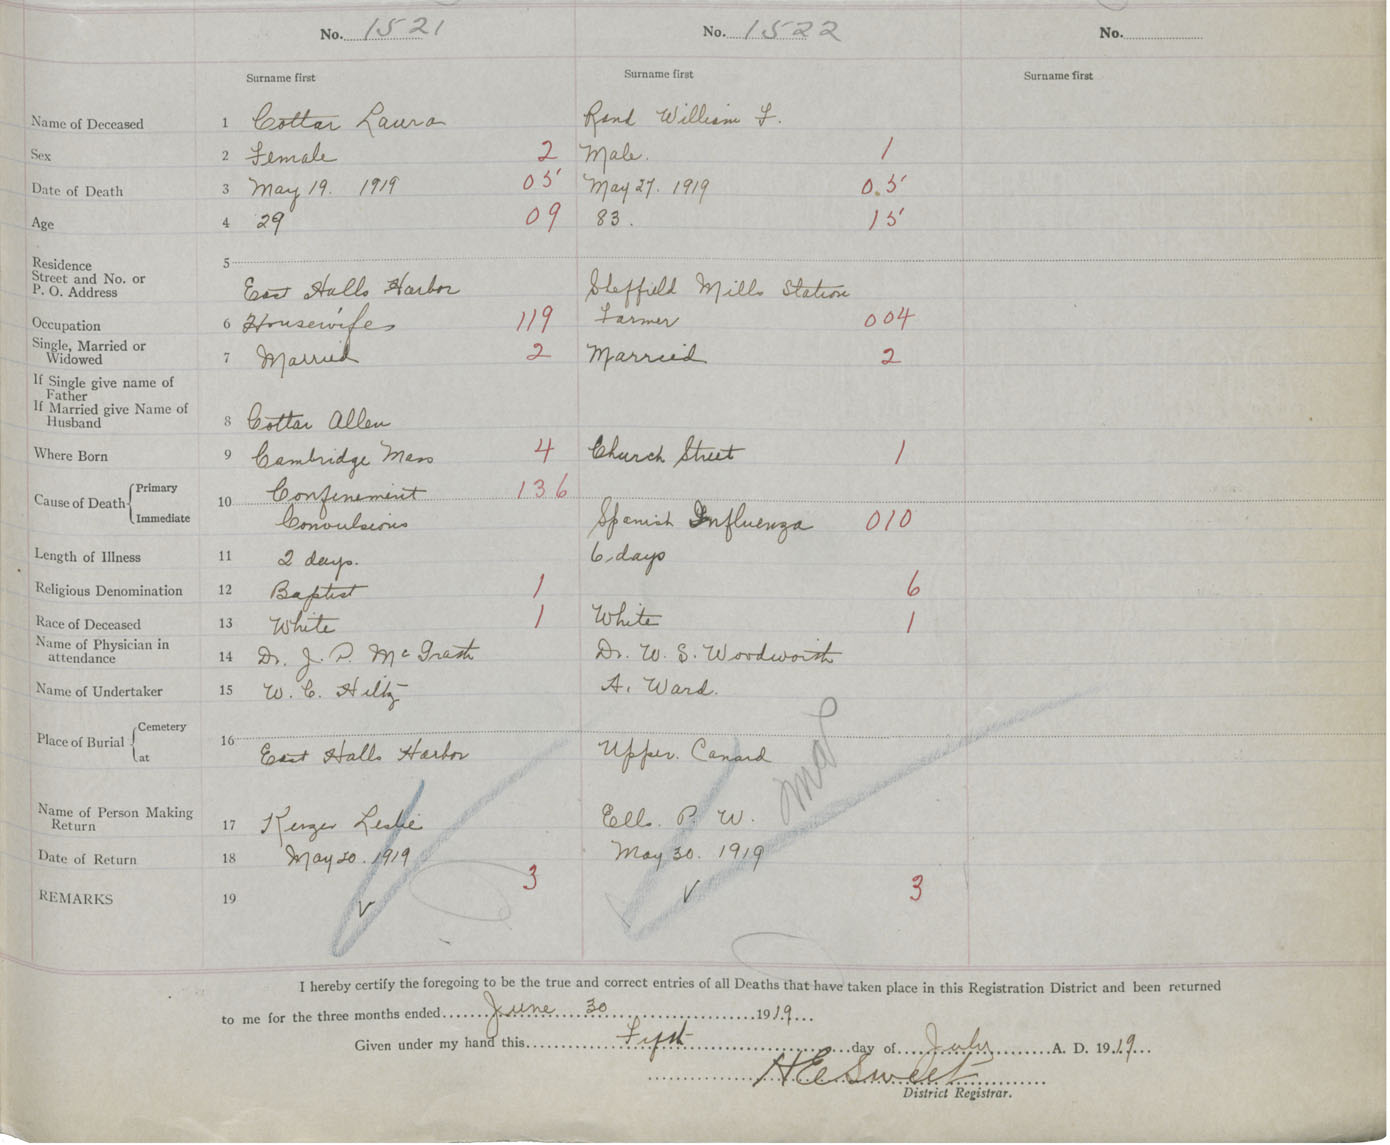 No. 1521 No. 1522 No.
Surname first Surname first Surname first
Name of Deceased 1 Cottar Laura Rand William F.
Sex 2 Female 2 Male. 1
Date of Death 3 May 19. 1919 05 May 27. 1919 0.5
Age 4 29 09 83. 15
Residence 5
Street and No. or
P. O. Address East Halls Harbor Sheffield Mills Station
Occupation 6 Housewifes 119 Farmer 004
Single, Married or
Widowed 7 Married 2 Married 2
If Single give name of
Father
If Married give Name of
Husband 8 Cottar Allen
Where Born 9 Cambridge Mass 4 Church Street 1
Cause of Death Primary 10 Confinement 136
Immediate Convulsions Spanish Influenza 010
Length of Illness 11 2 days. 6 days
Religious Denomination 12 Baptist 1 6
Race of Deceased 13 White 1 White 1
Name of Physician in
attendance 14 Dr. J. P. McGrath Dr. W. S. Woodworth
Name of Undertaker 15 W. C. Hiltz A. Ward.
Place of Burial Cemetery 16
at East Halls Harbor Upper. Canard
Name of Person Making
Return 17 Leslie Ells. P. W.
Date of Return 18 May 30. 1919 May 30. 1919
REMARKS 19 3 3
I hereby certify the foregoing to be the true and correct entries of all Deaths that have taken place in this Registration District and been returned
to me for the three months ended June 30 1919
Given under my hand this First day of July A. D. 1919
H E Sweet
District Registrar.